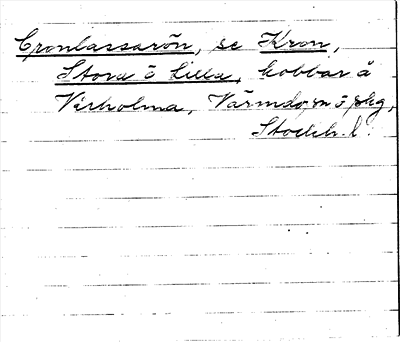 Cronlassarön, se Kron,
Stora o Lilla, kobbar å
Virholma, Värmdö sn o skg,
Stockh. l.